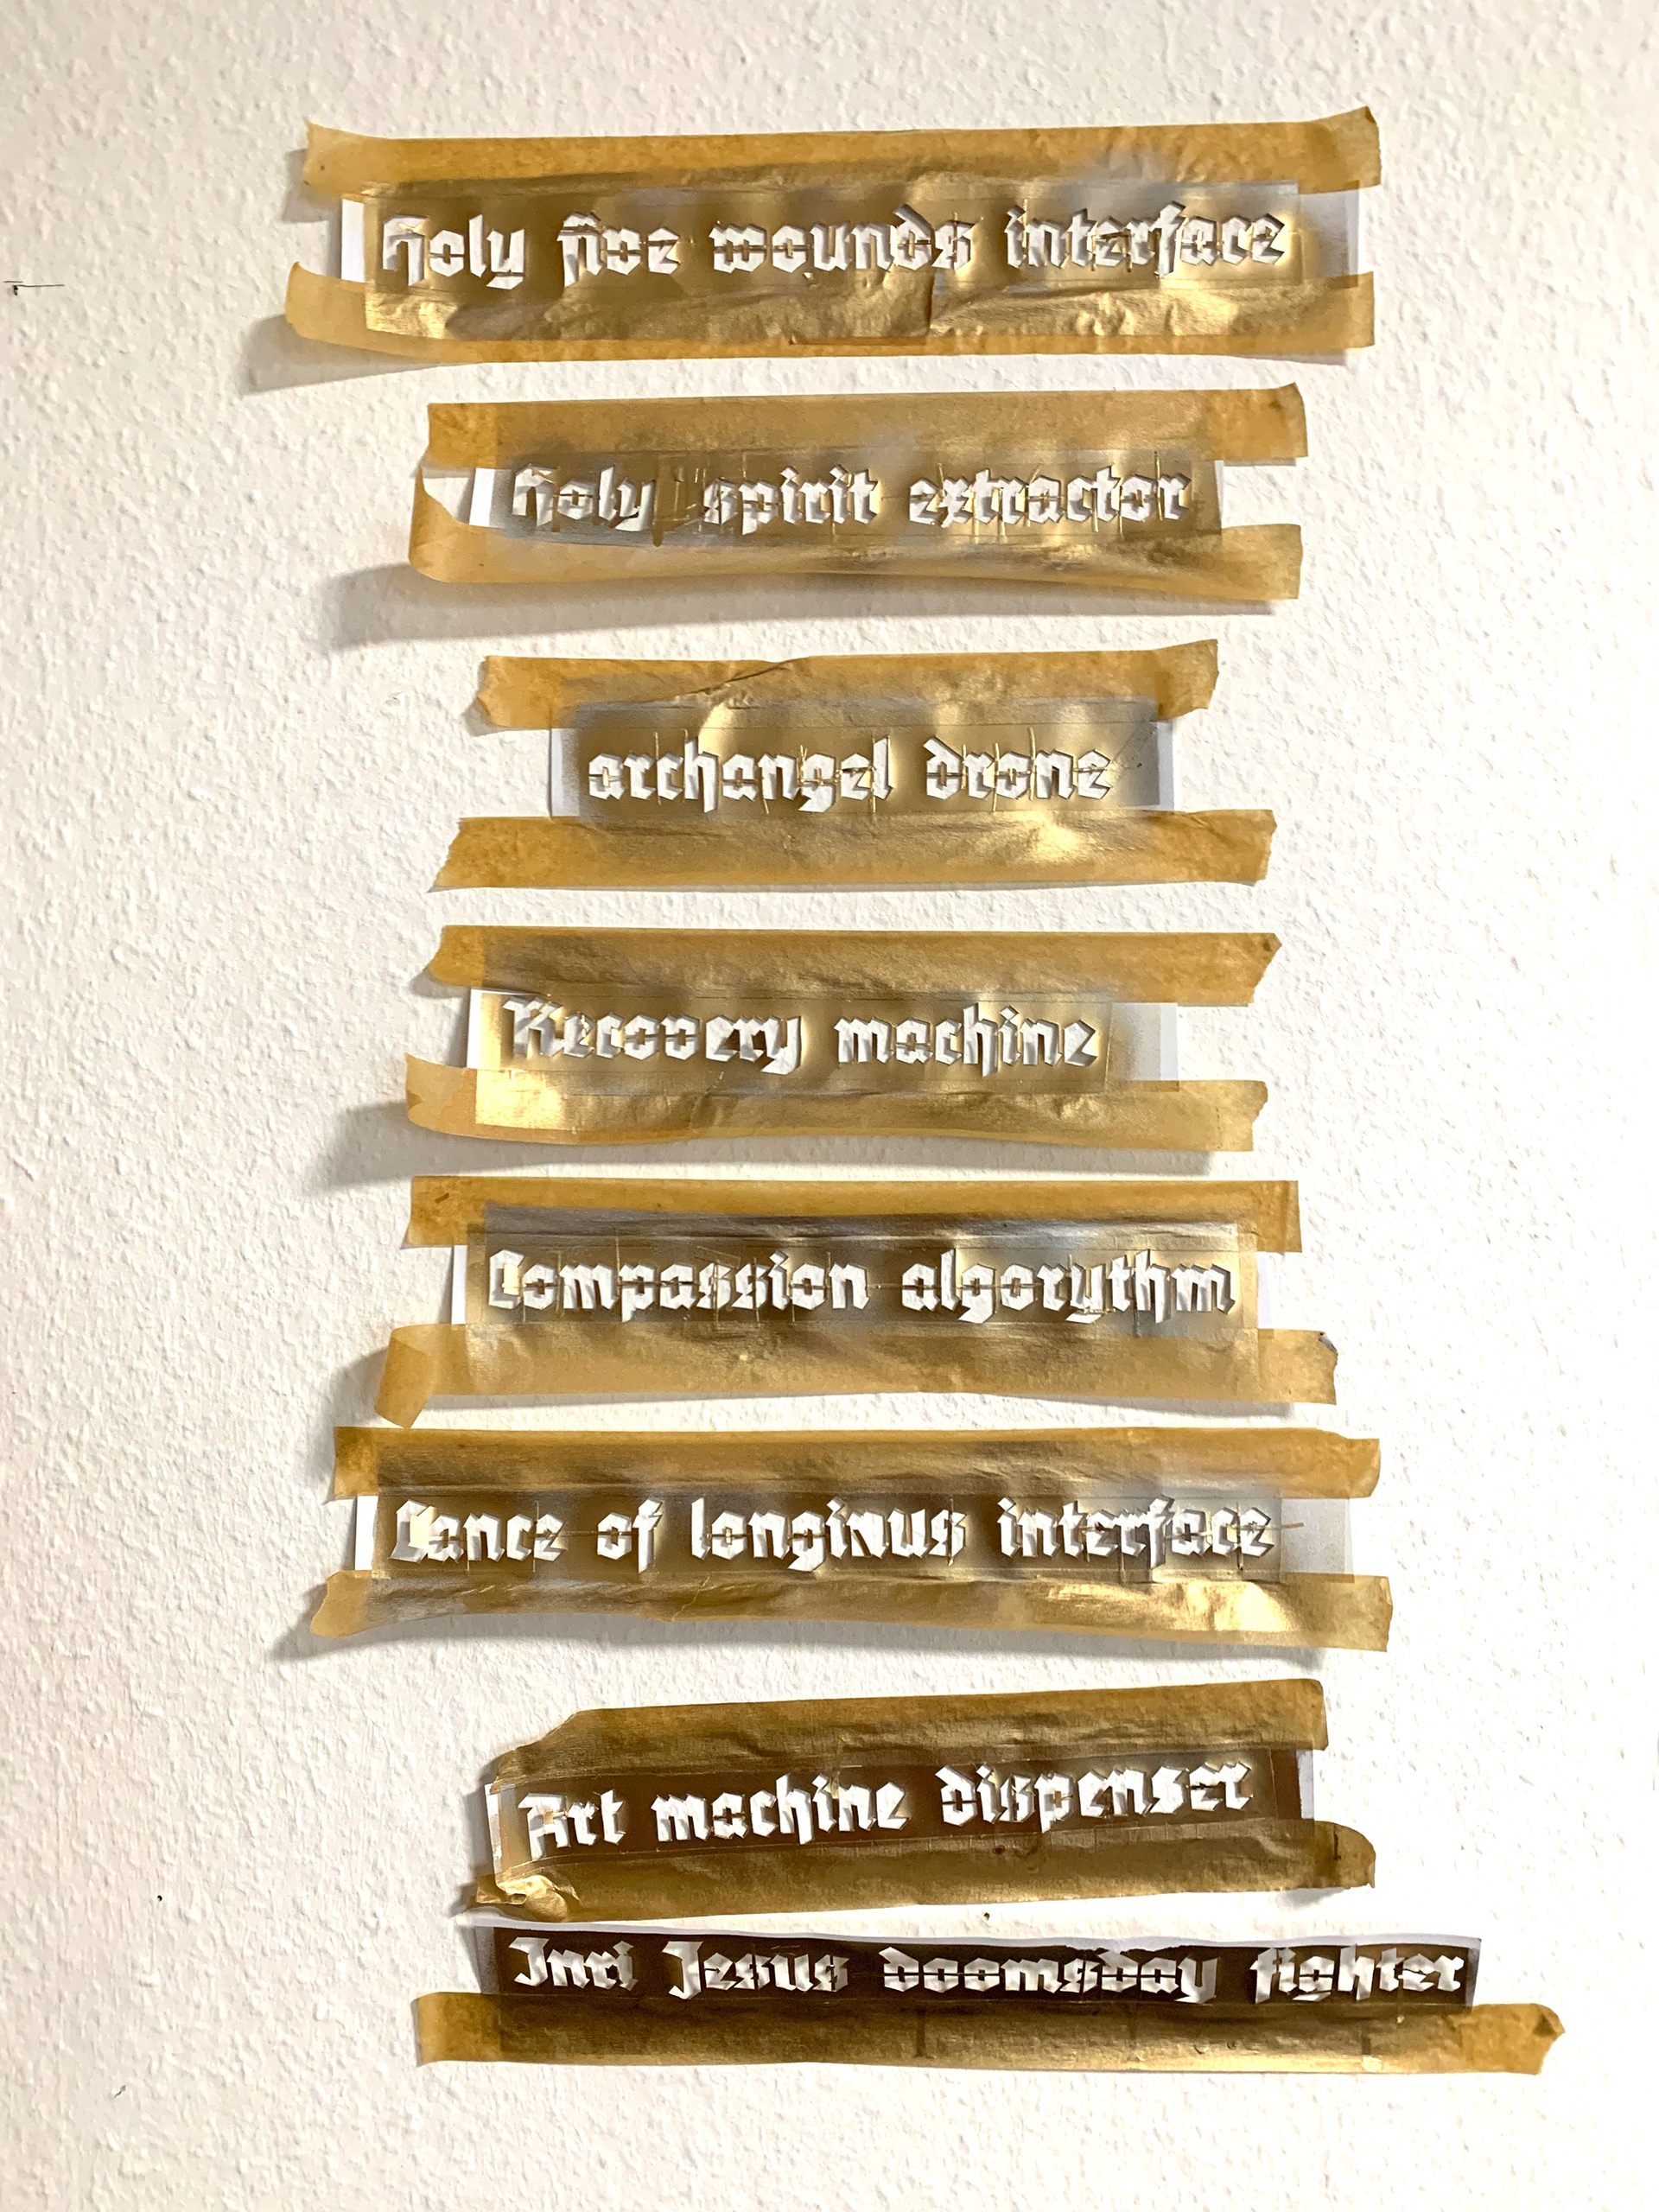 Holy five wounds interface
Holy spirit extractor
archangel drone
Recovery machine
Compassion algorythm
Lance of longinus interface
Art machine dispenser
Inri Jesus doomsday fighter